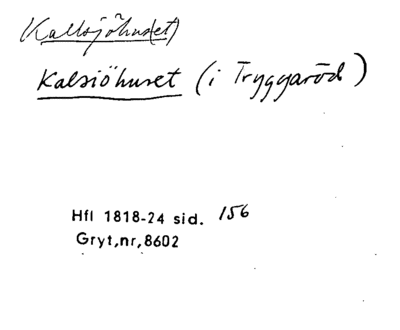 (Kallsjöhus(et)
Kalsiöhuset (i Tryggaröd)
Hfl 1818-24 sid. 156
Gryt,nr,8602